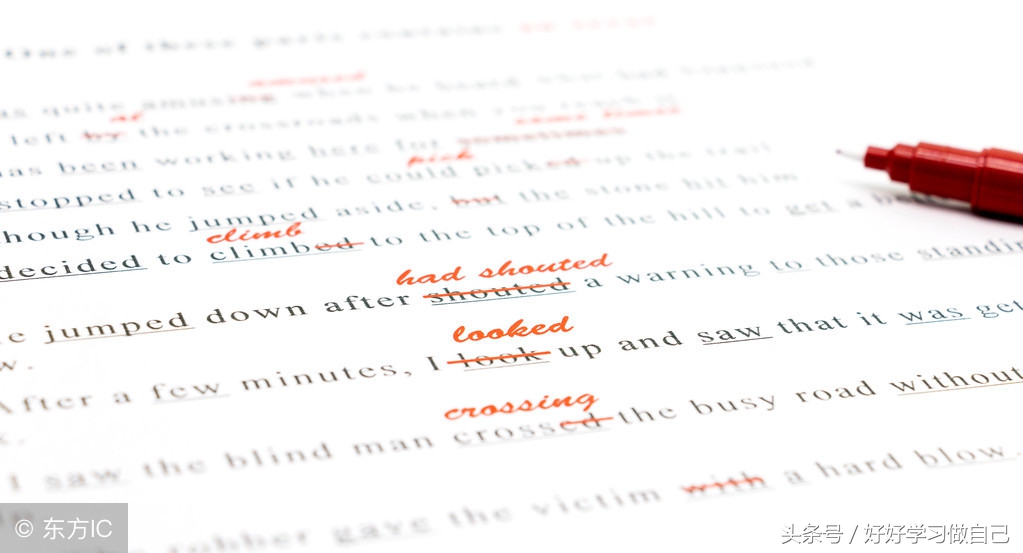 One of these parts contains
as quite amusing when he heard what had happened
at
left by the crossroads when you reach it
some times
has been working here for sometimes
pick
stopped to see if he could picked up the trail
hough he jumped aside, but the stone hit him
climb
decided to climbed to the top of the hill to get a
had shouted
e jumped down after shouted a warning to those standin
w.
looked
After a few minutes, I look up and saw that it was get
crossing
I saw the blind man crossed the busy road without
robber gave the victim with a hard blow.
© 东方IC
头条号 / 好好学习做自己